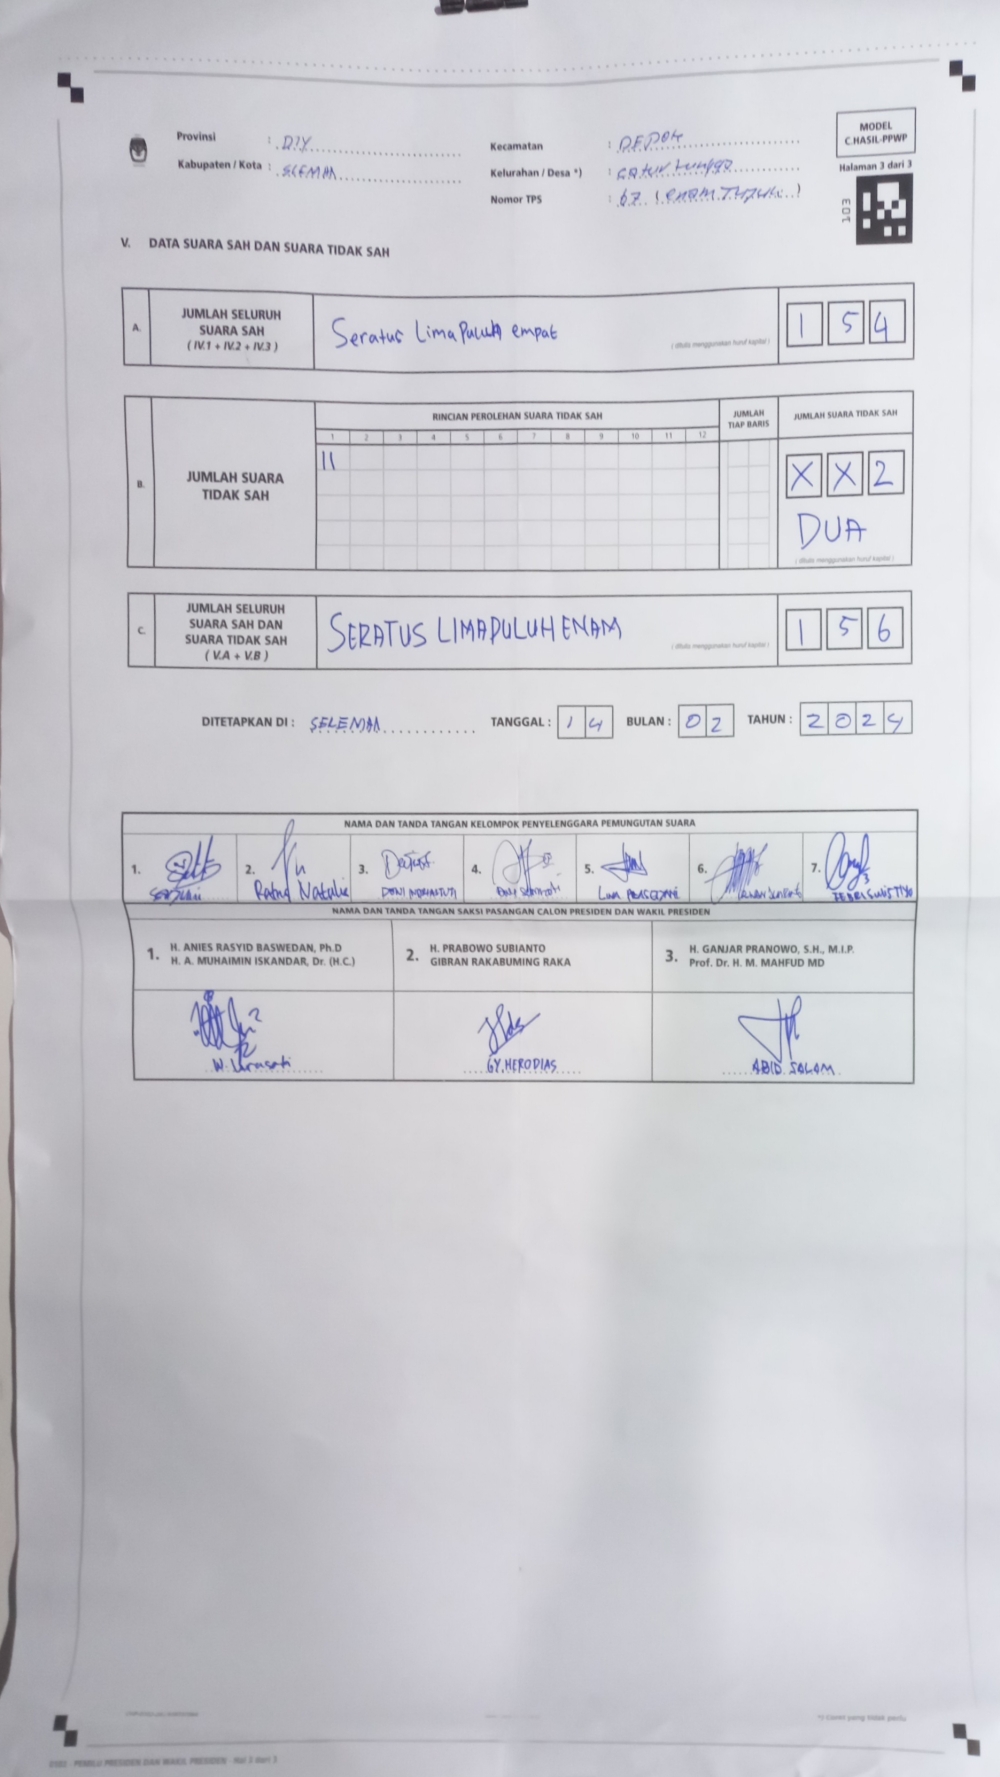 Provinsi : DIY
Kabupaten / Kota : SLEMAN
Kecamatan : DEPOK
Kelurahan / Desa *) : Catur tunggal
Nomor TPS : 67 (enam Tujuh)
MODEL
C.HASIL-PPWP
Halaman 3 dari 3
E01
V. DATA SUARA SAH DAN SUARA TIDAK SAH
A. JUMLAH SELURUH
SUARA SAH
( IV.1 + IV.2 + IV.3 )
Seratus Lima Puluh empat
( ditulis menggunakan huruf kapital )
1 5 4
B. JUMLAH SUARA
TIDAK SAH
RINCIAN PEROLEHAN SUARA TIDAK SAH
1 2 3 4 5 6 7 8 9 10 11 12
JUMLAH
TIAP BARIS
JUMLAH SUARA TIDAK SAH
II
X X 2
DUA
( ditulis menggunakan huruf kapital )
C. JUMLAH SELURUH
SUARA SAH DAN
SUARA TIDAK SAH
( V.A + V.B )
SERATUS LIMAPULUH ENAM
( ditulis menggunakan huruf kapital )
1 5 6
DITETAPKAN DI : SELEMAN TANGGAL : 1 4 BULAN : 0 2 TAHUN : 2 0 2 4
NAMA DAN TANDA TANGAN KELOMPOK PENYELENGGARA PEMUNGUTAN SUARA
1. 2. 3. 4. 5. 6. 7.
Natalie
NAMA DAN TANDA TANGAN SAKSI PASANGAN CALON PRESIDEN DAN WAKIL PRESIDEN
1. H. ANIES RASYID BASWEDAN, Ph.D
H. A. MUHAIMIN ISKANDAR, Dr. (H.C.)
2. H. PRABOWO SUBIANTO
GIBRAN RAKABUMING RAKA
3. H. GANJAR PRANOWO, S.H., M.I.P.
Prof. Dr. H. M. MAHFUD MD
GY. HERODIAS
ABID SALAM
*) Coret yang tidak perlu
E103 - PEMILU PRESIDEN DAN WAKIL PRESIDEN - Hal 3 dari 3